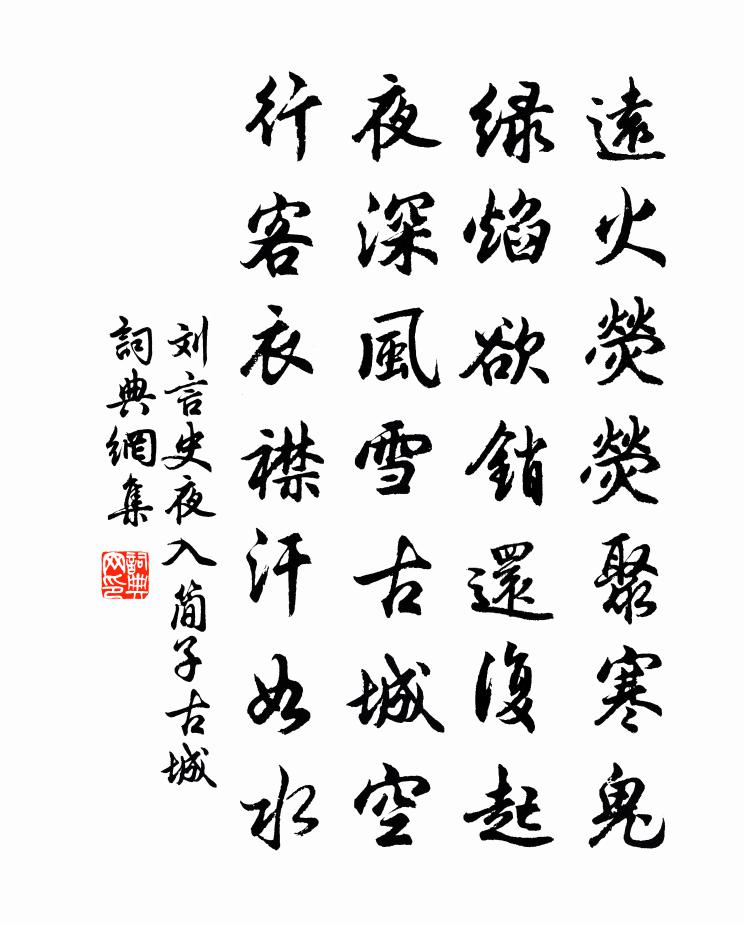 遠火熒熒聚寒鬼
緑焰欲銷還復起
夜深風雪古城空
行客衣襟汗如水
刘言史夜入简子古城
詞典網集
詞典网印